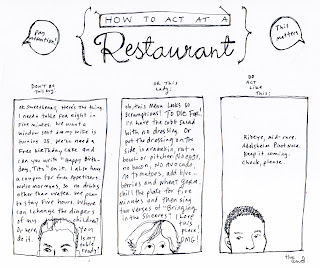 HOW TO ACT AT A
Pay
attention!
This
matters.
Restaurant
DON'T BE
this guy:
OR this
Lady:
DO
ACT
LIKE
This:
OK Sweetheart, Here's the thing
I need a table for eight in
five minutes. We want a
window seat and my wife is
turning 35. We're need a
Free birthday cake and
can you write "Happy Birth-
day, Tits" on it. I also have
a coupon for free Appetizers.
We're mormons, so no drinks
other than water. We plan
to stay five hours. Where
can I change the diapers
of our children?
Or here,
do it.
you
is my
table
ready?
Oh, this Menu Looks SO
Scrumptious! TO DIE FOR!
I'll have the cobb salad
with no dressing. Or
put the dressing on the
side, in a ramekin, not a
bowl or pitcher. No eggs,
no bacon, no avocado,
no tomatoes, add blue-
berries and wheat germ
chill the plate for five
minutes and then sing
two verses of "Bringing
in the Sheeves". I Love
this
place!
OMG!
Ribeye, mid-rare.
Addelsheim Pinot Noir.
Keep it coming.
Check, please.
the
end